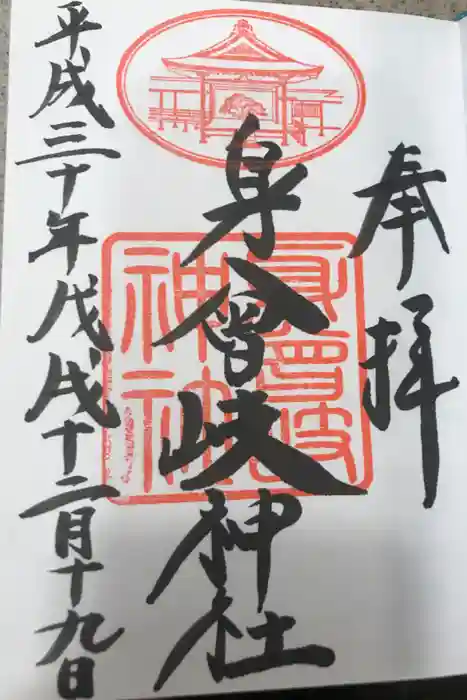 奉拝
身曾岐神社
身曾岐
神社
平成三十年戊戌十二月十九日